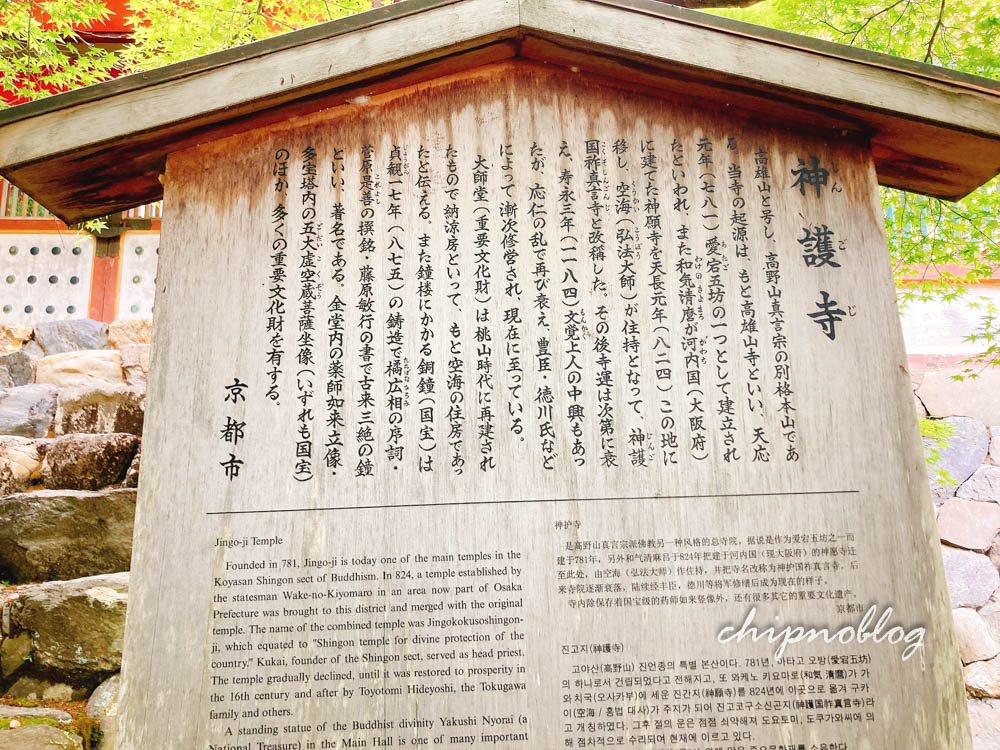 神護寺
高雄山と号し、高野山真言宗の別格本山であ
る。当寺の起源は、もと高雄山寺といい、天応
元年(七八一)愛宕五坊の一つとして建立され
たといわれ、また和気清麿が河内国(大阪府)
に建てた神願寺を天長元年(八二四)この地に
移し、空海(弘法大師)が住持となって、神護
国祚真言寺と改稱した。その後寺運は次第に衰
え、寿永三年(一一八四)文覚上人の中興もあっ
たが、応仁の乱で再び衰え、豊臣・徳川氏など
によって漸次修営され、現在に至っている。
大師堂(重要文化財)は桃山時代に再建され
たもので納涼房といって、もと空海の住房であっ
たと伝える。また鐘楼にかかる銅鐘(国宝)は
貞観一七年(八七五)の鋳造で橘広相の序詞・
菅原是善の撰銘・藤原敏行の書で古来三絶の鐘
といい、著名である。金堂内の薬師如来立像・
多宝塔内の五大虚空蔵菩薩坐像(いずれも国宝)
のほか、多くの重要文化財を有する。
京都市
Jingo-ji Temple
Founded in 781, Jingo-ji is today one of the main temples in the
Koyasan Shingon sect of Buddhism. In 824, a temple established by
the statesman Wake-no-Kiyomaro in an area now part of Osaka
Prefecture was brought to this district and merged with the original
temple. The name of the combined temple was Jingokokusoshingon-
ji, which equated to "Shingon temple for divine protection of the
country." Kukai, founder of the Shingon sect, served as head priest.
The temple gradually declined, until it was restored to prosperity in
the 16th century and after by Toyotomi Hideyoshi, the Tokugawa
family and others.
A standing statue of the Buddhist divinity Yakushi Nyorai (a
National Treasure) in the Main Hall is one of many important
神护寺
是高野山真言宗派佛教另一种风格的总寺院，据说是作为爱宕五坊之一而
建于781年，另外和气清麻吕于824年把建于河内国（现大阪府）的神愿寺迁
至此处，由空海（弘法大师）作住持，并把寺名改称为神护国祚真言寺，后
来寺院逐渐衰落，陆续经丰臣，德川等将军修缮后成为现在的样子。
寺内除保存着国宝级的药师如来竖像外，还有很多其它的重要文化遗产。
京都市
진고지(神護寺)
고야산(高野山) 진언종의 특별 본산이다. 781년, 아타고 오방(愛宕五坊)
의 하나로서 건립되었다고 전해지고, 또 와케노 키요마로(和気 清麿)가 가
와치국(오사카부)에 세운 진간지(神願寺)를 824년에 이곳으로 옮겨 구카
이(空海 / 홍법 대사)가 주지가 되어 진고코구소신곤지(神護国祚真言寺)라
고 개칭하였다. 그후 절의 운은 점점 쇠약해져 도요토미, 도쿠가와씨에 의
해 점차적으로 수리되어 현재에 이르고 있다.
chipnoblog